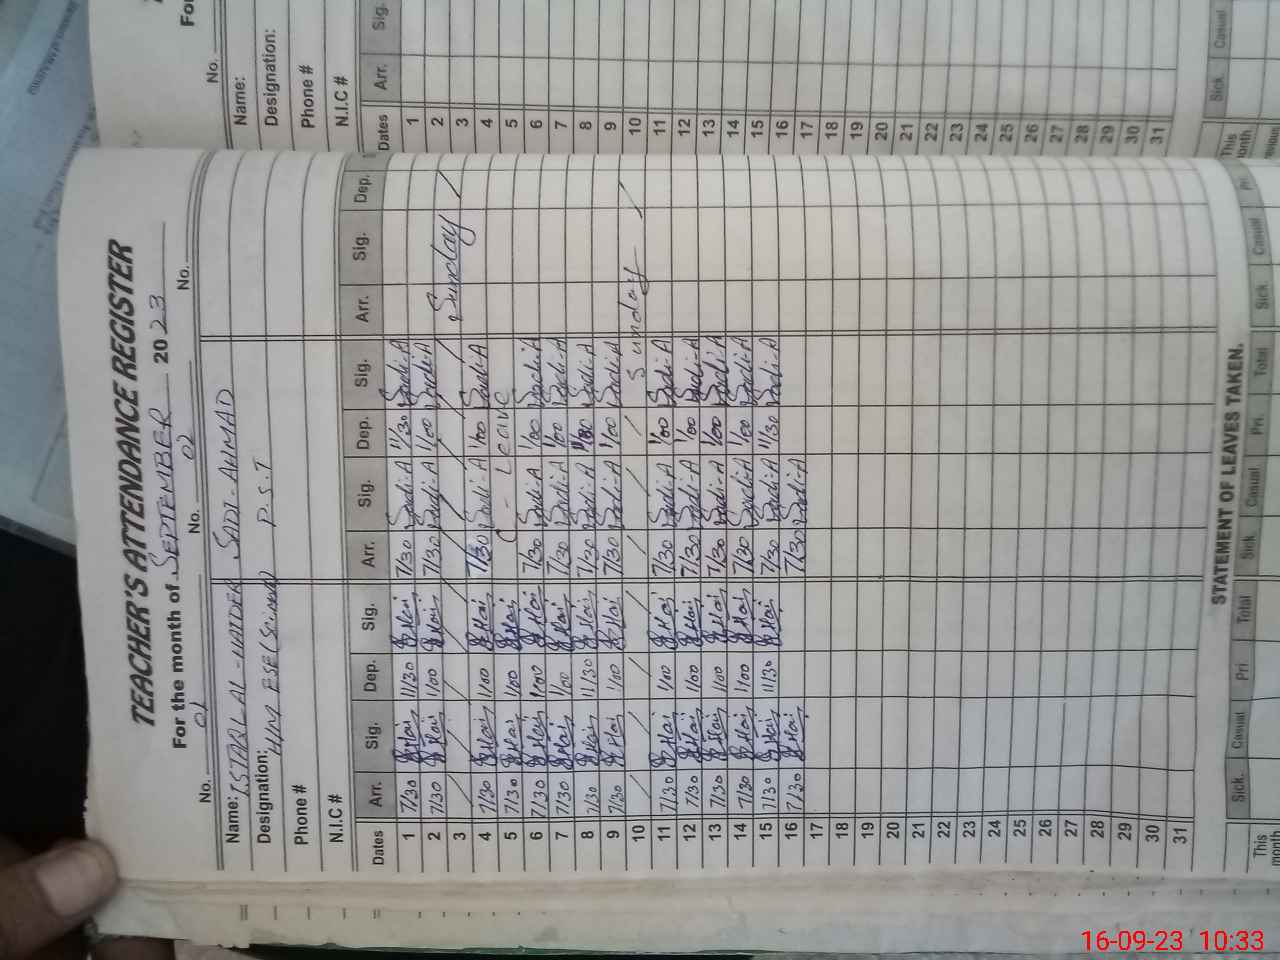 TEACHER'S ATTENDANCE REGISTER
For the month of SEPTEMBER 2023
No. 01 No. 02 No.
Name: ISTAQLAL-HAIDER SADI-AHMAD
Designation: H/M ESE(Science) P.S.T
Phone #
N.I.C #
Dates Arr. Sig. Dep. Sig. Arr. Sig. Dep. Sig. Arr. Sig. Dep.
1 7/30 11/30 7/30 Sadi-A 11/30 Sadi-A
2 7/30 1/00 7/30 Sadi-A 1/00 Sadi-A
3 Sunday
4 7/30 1/00 7/30 Sadi-A 1/00 Sadi-A
5 7/30 1/00 C - Leave
6 7/30 1/00 7/30 Sadi-A 1/00 Sadi-A
7 7/30 1/00 7/30 Sadi-A 1/00 Sadi-A
8 7/30 11/30 7/30 Sadi-A Sadi-A
9 7/30 1/00 7/30 Sadi-A 1/00 Sadi-A
10 Sunday
11 7/30 1/00 7/30 Sadi-A 1/00 Sadi-A
12 7/30 1/00 7/30 Sadi-A 1/00 Sadi-A
13 7/30 1/00 7/30 Sadi-A 1/00 Sadi-A
14 7/30 1/00 7/30 Sadi-A 1/00 Sadi-A
15 7/30 11/30 7/30 Sadi-A 11/30 Sadi-A
16 7/30 7/30 Sadi-A
17
18
19
20
21
22
23
24
25
26
27
28
29
30
31
STATEMENT OF LEAVES TAKEN.
Sick. Casual Pri Total Sick. Casual Pri. Total Sick. Casual Pri
This month
No.
Name:
Designation:
Phone #
N.I.C #
Dates Arr. Sig.
1
2
3
4
5
6
7
8
9
10
11
12
13
14
15
16
17
18
19
20
21
22
23
24
25
26
27
28
29
30
31
Sick. Casual
This month
16-09-23 10:33